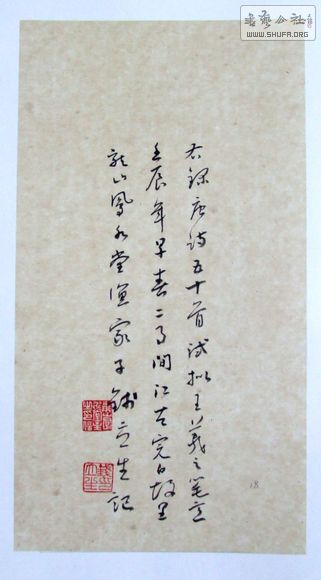 書藝公社
WWW.SHUFA.ORG
右錄唐詩五十首試擬王羲之筆意
壬辰年早春二月間江完白故里
龍山鳳水堂漁家子生記
18